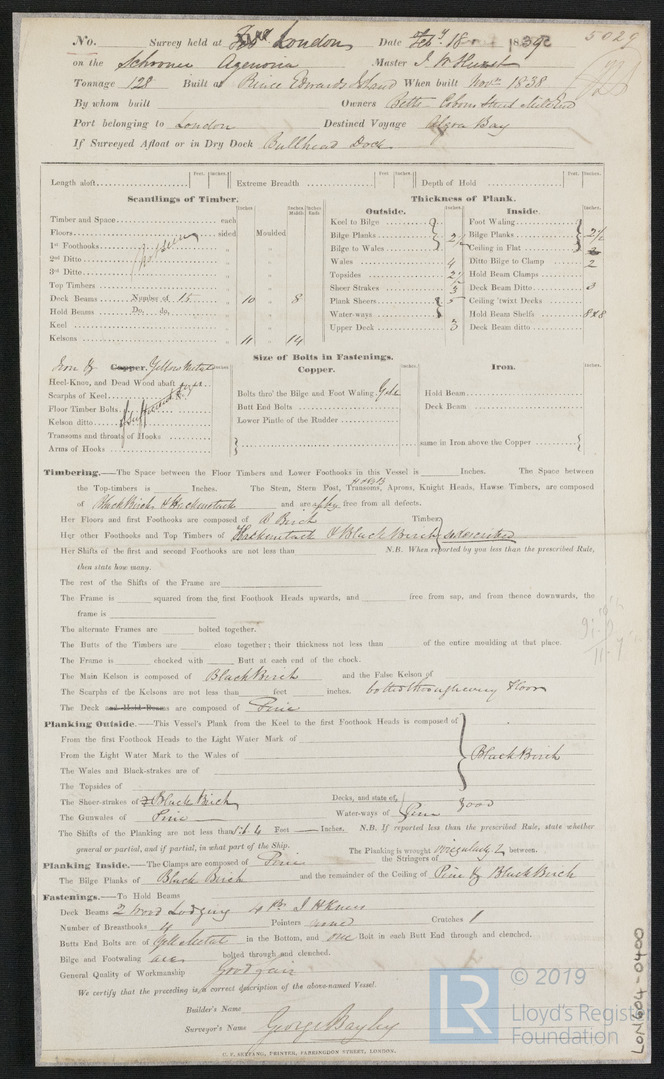 5029
No. Survey held at London Date Feby. 18 1839
on the Schooner Agenoria Master J. W. Hurst
Tonnage 128 Built at Prince Edwards Island When built Novr. 1838
By whom built Owners Betts
Port belonging to London Destined Voyage Algoa Bay
If Surveyed Afloat or in Dry Dock Bullhead Dock
Length aloft Feet. Inches. Extreme Breadth Feet. Inches. Depth of Hold Feet. Inches.
Scantlings of Timber. Inches. Inches. Middle Inches. Ends
Thickness of Plank.
Outside. Inches. Inside. Inches.
Timber and Space each
Floors sided Moulded
1st Foothooks
2nd Ditto
3rd Ditto
Top Timbers
Deck Beams Number of 15 10 8
Hold Beams Do. do.
Keel
Kelsons 11 14
Keel to Bilge
Bilge Planks 2½
Bilge to Wales
Wales 4
Topsides 2½
Sheer Strakes 3
Plank Sheers
Water-ways
Upper Deck 3
Foot Waling
Bilge Planks 2½
Ceiling in Flat
Ditto Bilge to Clamp 2
Hold Beam Clamps
Deck Beam Ditto 3
Ceiling 'twixt Decks
Hold Beam Shelfs 8x8
Deck Beam ditto
Size of Bolts in Fastenings.
Iron & Copper. Yellow Metal Inches. Copper. Inches. Iron. Inches.
Heel-Knee, and Dead Wood abaft
Scarphs of Keel
Floor Timber Bolts
Kelson ditto
Transoms and throats of Hooks
Arms of Hooks
Bolts thro' the Bilge and Foot Waling
Butt End Bolts
Lower Pintle of the Rudder
Hold Beam
Deck Beam
same in Iron above the Copper
Timbering.—The Space between the Floor Timbers and Lower Foothooks in this Vessel is Inches. The Space between
the Top-timbers is Inches. The Stem, Stern Post, Transoms, Aprons, Knight Heads, Hawse Timbers, are composed
of Black Birch & Hackmatack and are free from all defects.
Her Floors and first Foothooks are composed of B Birch Timber
Her other Foothooks and Top Timbers of Hackmatack & Black Birch
Her Shifts of the first and second Foothooks are not less than N.B. When reported by you less than the prescribed Rule,
then state how many.
The rest of the Shifts of the Frame are
The Frame is squared from the first Foothook Heads upwards, and free from sap, and from thence downwards, the
frame is
The alternate Frames are bolted together.
The Butts of the Timbers are close together; their thickness not less than of the entire moulding at that place.
The Frame is chocked with Butt at each end of the chock.
The Main Kelson is composed of Black Birch and the False Kelson of
The Scarphs of the Kelsons are not less than feet inches. bolted through every Floor
The Deck and Hold Beams are composed of Pine
Planking Outside.—This Vessel's Plank from the Keel to the first Foothook Heads is composed of
From the first Foothook Heads to the Light Water Mark of
From the Light Water Mark to the Wales of Black Birch
The Wales and Black-strakes are of
The Topsides of
The Sheer-strakes of Black Birch Decks, and state of, good
The Gunwales of Pine Water-ways of Pine
The Shifts of the Planking are not less than 4 Feet — Inches. N.B. If reported less than the prescribed Rule, state whether
general or partial, and if partial, in what part of the Ship. The Planking is wrought irregularly 2 between.
Planking Inside.—The Clamps are composed of Pine the Stringers of
The Bilge Planks of Black Birch and the remainder of the Ceiling of Pine & Black Birch
Fastenings.—To Hold Beams
Deck Beams 2 Wood Lodging 4 Pr. I H Knees
Number of Breasthooks 4 Pointers none Crutches 1
Butts End Bolts are of Yell Metal in the Bottom, and one Bolt in each Butt End through and clenched.
Bilge and Footwaling are bolted through and clenched.
General Quality of Workmanship Good fair
We certify that the preceding is a correct description of the above-named Vessel.
Builder's Name
Surveyor's Name George Bayley
C. F. SEYFANG, PRINTER, FARRINGDON STREET, LONDON.
LON604-0400
LR
© 2019
Lloyd's Register
Foundation